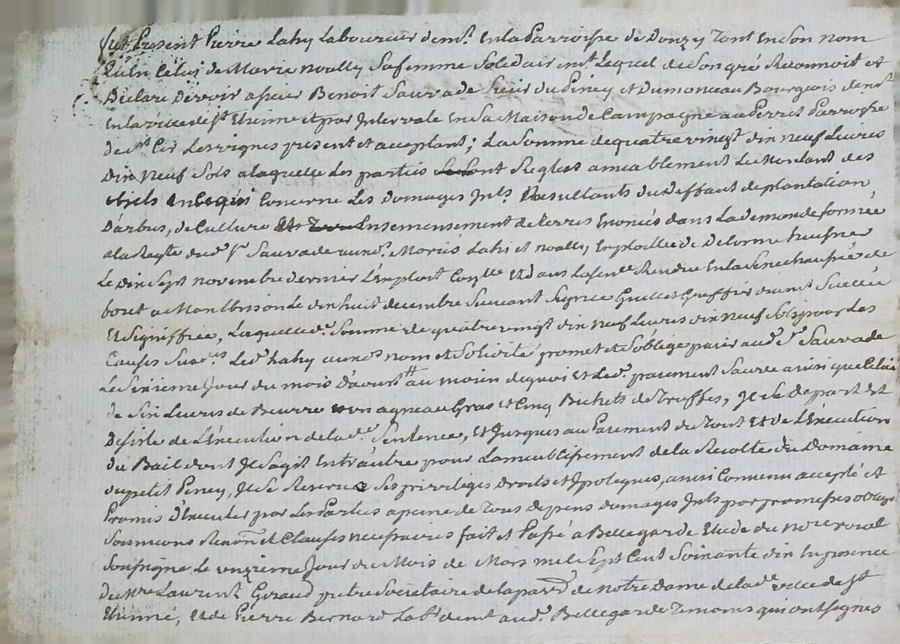 fut Present Pierre Lahy Laboureur demt. En la Parroisse de Donzy Tant En Son nom
qu'en Celui de Marie noally Sa femme Solidairemt. Lequel de Son gré Reconnoit et
Déclare Devoir a sieur Benoit Sauvade Sieur du Piney et du moncau Bourgois demt.
En la ville de st. Etienne et par Intervale En Sa Maison de Campagne au Perret Parroisse
de st. Cir Les vignes present et aceptant; La Somme de quatre vingt dix neuf Livres
Dix Neuf Sols a laquelle Les parties Se Sont Reglées amiablement Le Montant des
objets En Ce qui Concerne Les Domages Jnts. Resultants du Deffaut de plantation
D'arbres, de Culture Et Ensemensement de terres Enoncés dans La demande formée
a la Reqte du d. Sr. Sauvade aux d. Mariés Lahi et noally, Exploittée de Delorme huissier
Le dix Sept novembre dernier L'exploit Conllé Et dans La Sence Rendue En la Senechaussée de
bout a Montbrison Le dix huit decembre Suivant Signée Greffier duemt Scellée
Et Signiffiée, Laquelle d. Somme de quatre vingt dix neuf Livres dix neuf Sols pour Les
Causes Susdes. Led. Lahy aux d. nom et Solidité promet et Soblege paier aud. Sr. Sauvade
Le Sixieme Jour du mois d'aoust au moien de quoi Et Led. paiement Sauve ainsi que Celui
de Six Livres de Beurre un agneau Gras et Cinq Bichets de Truffes, Jl Se Depart Et
Desiste de L'execution de lad. Sentence, Et Jusques au Paiement du Tout Et de L'Execution
du Bail dont Jl S'agit Entr'autre pour L'ameublissement de la Recolte du Domaine
du petit Piney, Jl Se Reserve Ses privileges Droits et Ypoteques, ainsi Convenu accepté et
Promis D'executer par Les Parties a peine de Tous Depens Domages Jnts. par promesses oblig.
Soumissions Renon. et Clauses necessaires fait et Passé a Bellegarde Etude du Nore. roial
Soussigné Le onzieme Jour du Mois de Mars mil Sept Cent Soixante dix En presence
de Mre Laurent Giraud pretre Sécretaire de la parsse. de notre Dame de lad. ville de St.
Etienne, Et de Pierre Bernard Labr. demt. aud. Bellegarde Temoins qui ont Signés